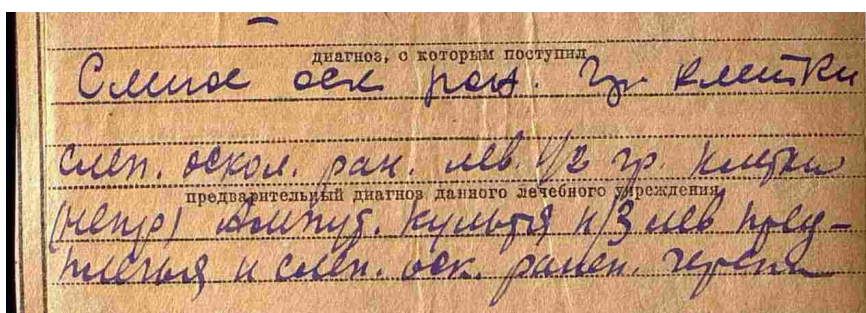 диагноз, с которым поступил
Слепое оск ран. гр. клетки
слеп. оскол. ран. лев. 1/2 гр. клетки
предварительный диагноз данного лечебного учреждения
Ампут. культя н/3 лев пред-
плечья и слеп. оск. ранен. черепа